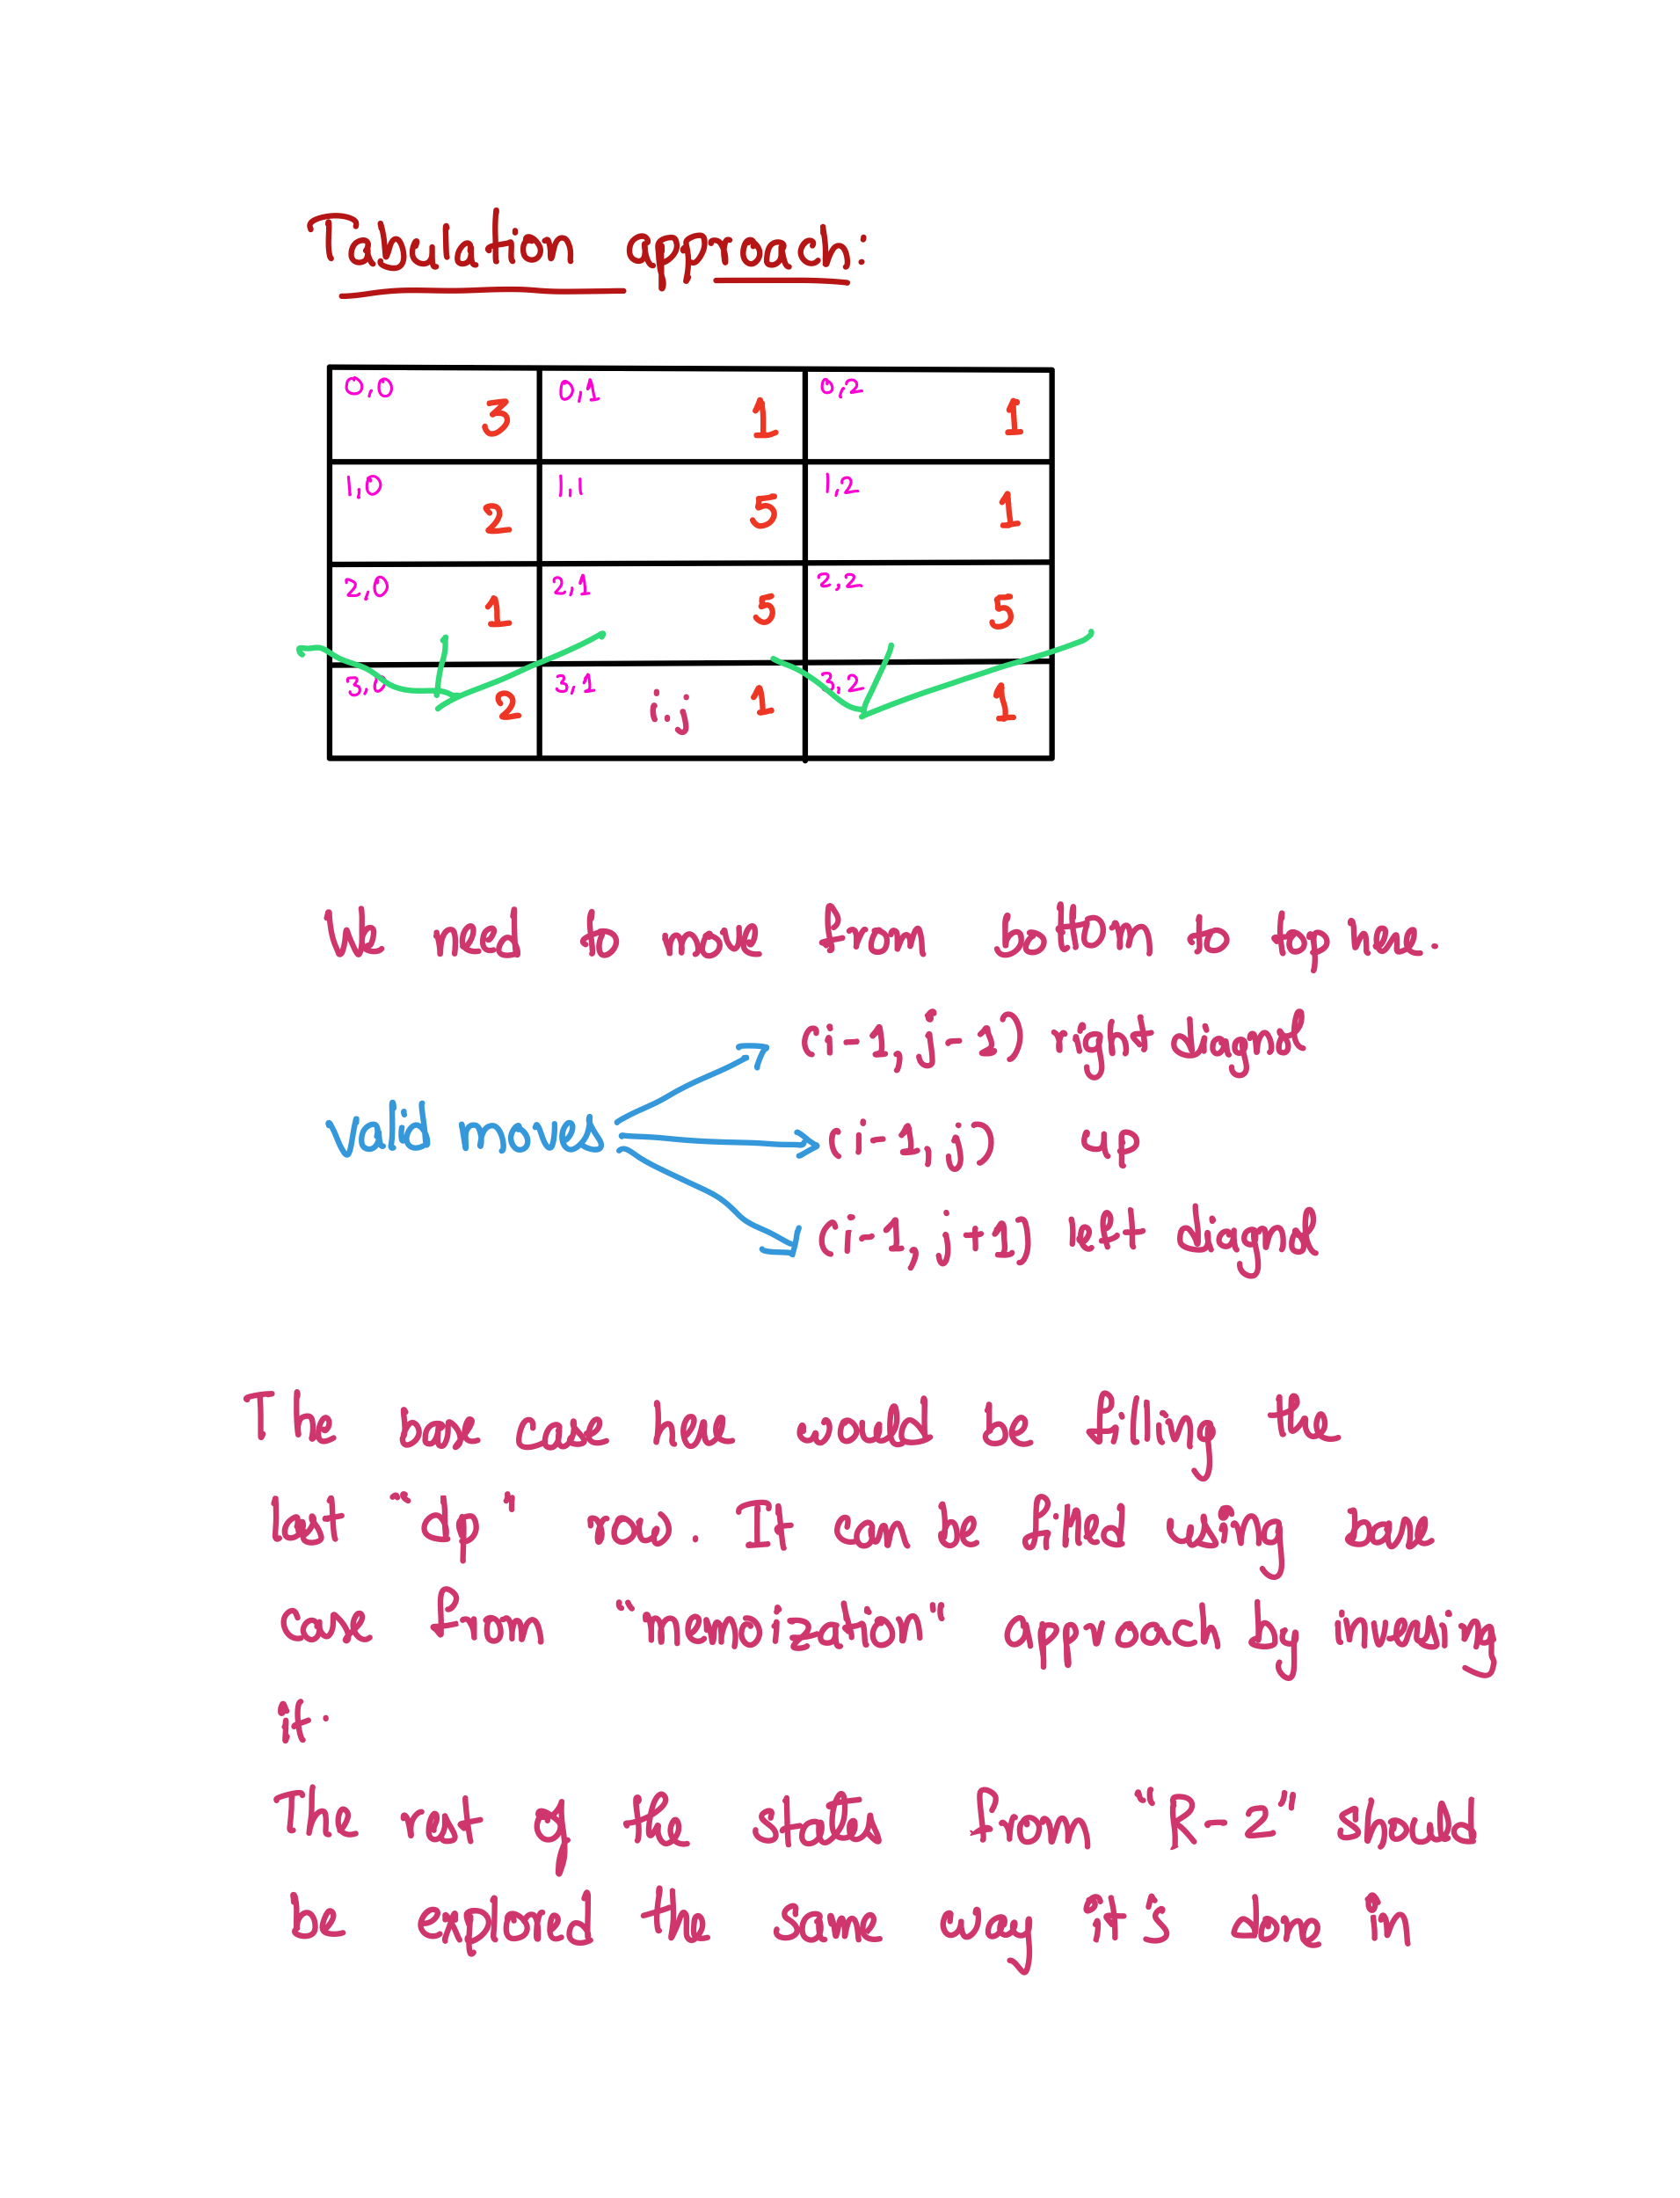 Tabulation approach:
0,0 3 0,1 1 0,2 1
1,0 2 1,1 5 1,2 1
2,0 1 2,1 5 2,2 5
3,0 2 3,1 i.j 1 3,2 1
We need to move from bottom to top here.
(i-1, j-1) right diagnol
valid moves (i-1, j) up
(i-1, j+1) left diagnol
The base case here would be filling the
last "dp" row. It can be filled using base
case from "memoization" approach by inversing
it.
The rest of the states from "R-2" should
be explored the same way it's done in